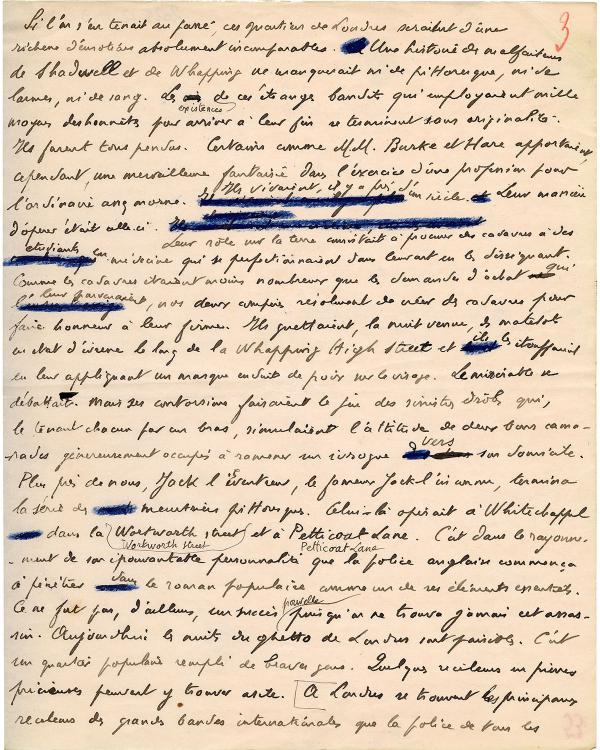 3
Si l'on s'en tenait au passé, ces quartiers de Londres seraient d'une
richesse d'émotions absolument incomparables. Une histoire des malfaiteurs
de Shadwell et de Whapping ne manquerait ni de pittoresque, ni de
larmes, ni de sang. Les existences de ces étranges bandits qui employaient mille
moyens deshonnêtes pour arriver à leur fin se terminent sans originalité.
Ils furent tous pendus. Certains comme M.M. Burke et Hare apportaient,
cependant, une merveilleuse fantaisie dans l'exercice d'une profession pour
l'ordinaire assez morne. Ils vivaient, il y a près d'un siècle Leur manière
d'opérer était celle-ci.
Leur rôle sur la terre consistait à procurer des cadavres à des
étudiants en médecine qui se perfectionnaient dans leur art en les disséquant.
Comme les cadavres étaient moins nombreux que les demandes d'achat qui
leur parvenaient, nos deux compères résolurent de créer des cadavres pour
faire honneur à leur firme. Ils guettaient, la nuit venue, des matelots
en état d'ivresse le long de la Whapping High Street et ils les étouffaient
en leur appliquant un masque enduit de poix sur le visage. Le misérable se
débattait. Mais ses contorsions faisaient le jeu des sinistres drôles qui,
le tenant chacun par un bras, simulaient l'attitude de deux bons cama-
-rades généreusement occupés à ramener un ivrogne vers son domicile.
Plus près de nous, Jack l'Eventreur, le fameux Jack-l'éventreur, termina
la série des meurtriers pittoresques. Celui-là opérait à Whitechappel
dans la Wortworth Street et à Petticoat Lane. C'est dans le rayonne-
Wortworth Street Petticoat Lane
-ment de son épouvantable personnalité que la police anglaise commença
à pénétrer dans le roman populaire comme un de ses éléments essentiels.
Ce ne fut pas, d'ailleurs, un succès pour elle puisqu'on ne trouva jamais cet assas-
sin. Aujourd'hui les nuits du ghetto de Londres sont paisibles. C'est
un quartier populaire rempli de braves gens. Quelques receleurs en pierres
précieuses peuvent y trouver asile. A Londres se trouvent les principaux
receleurs des grandes bandes internationales que la police de tous les
23